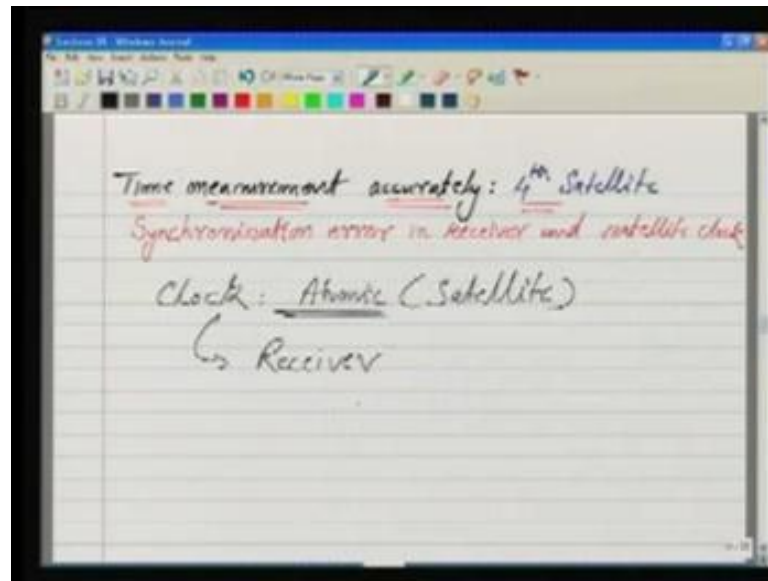 Time measurement accurately: 4th Satellite
Synchronisation error in receiver and satellite clock
Clock: Atomic (Satellite)
Receiver